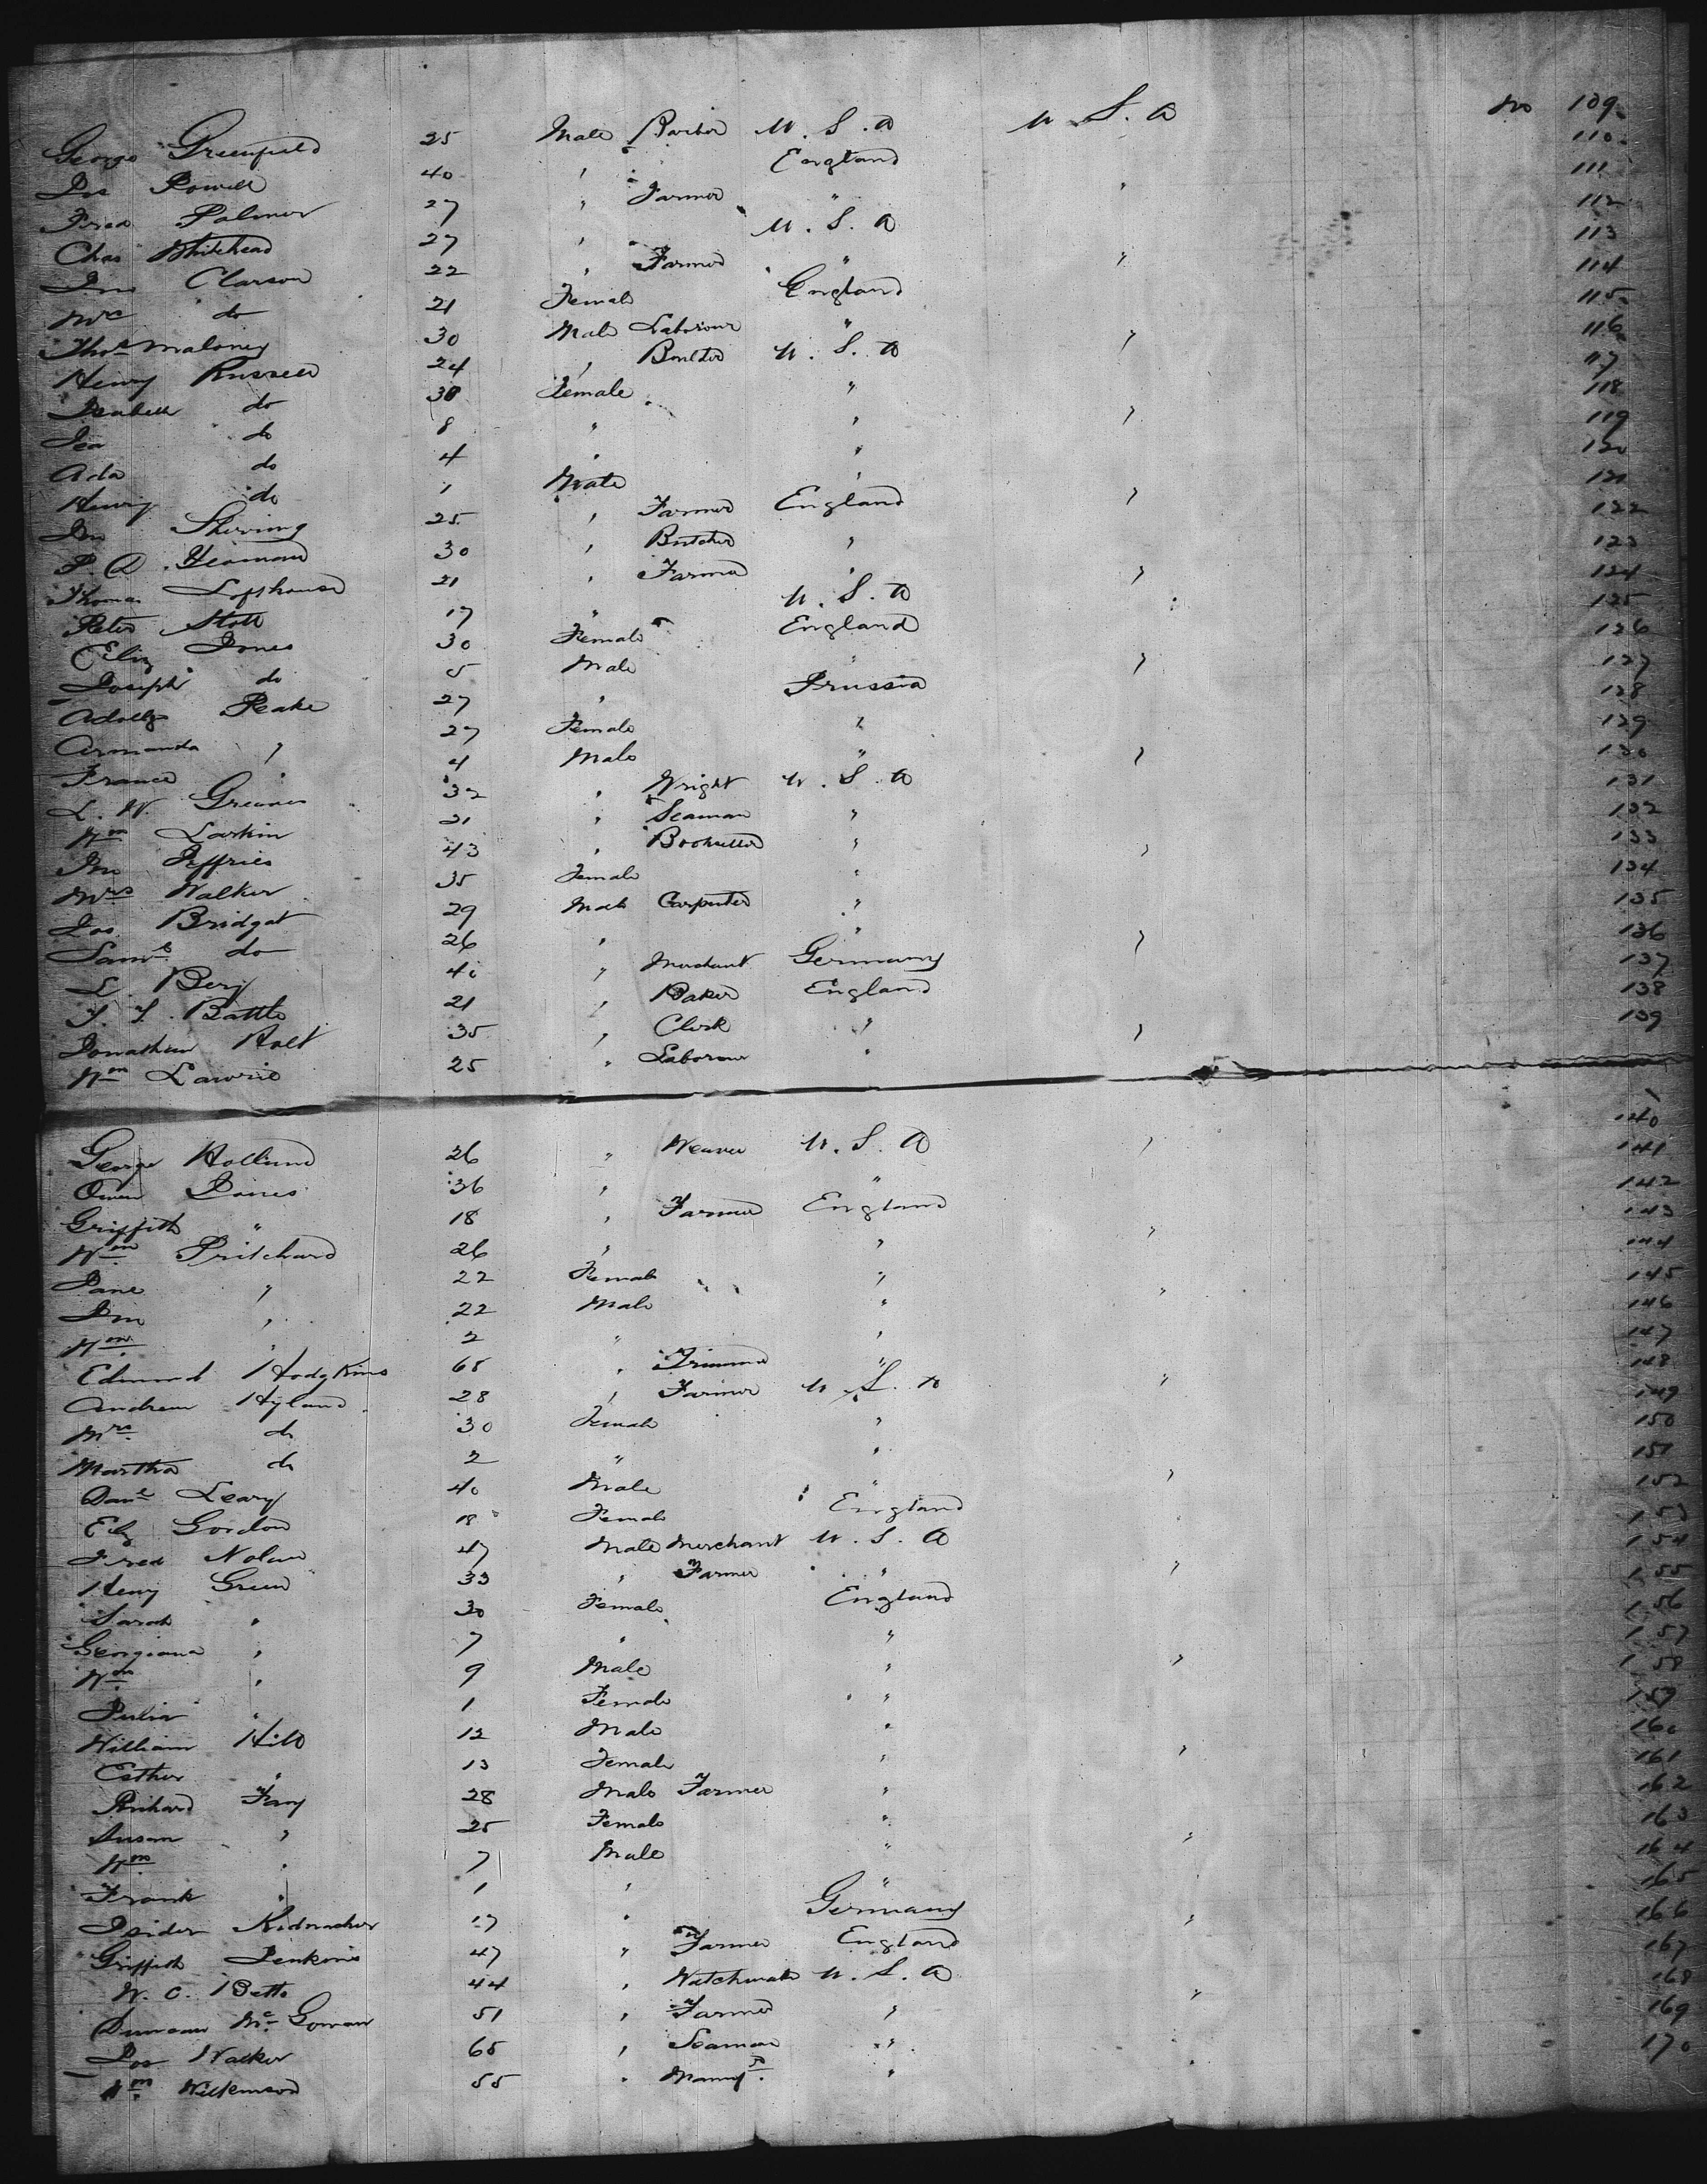 George Greenfield 25 Male Barber U.S.A U.S.A No 109
Jos Powell 40 " " England 110
Fred Palmer 27 " Farmer " " 111
Chas Whitehead 27 " " U.S.A 112
Jno Clarson 22 " Farmer " " 113
Mrs do 21 Female England 114
Thos Maloney 30 Male Labourer " 115
Henry Russell 24 " U.S.A " 116
Isabella do 30 Female " 117
do 8 " " " 118
Ada do 4 " " 119
Henry do 1 Male " 120
Jno 25 " Farmer England " 121
P.A. Yeoman 30 " Butcher " 122
Thomas Lofthouse 21 " Farmer " " 123
Peter Stott 17 " U.S.A 124
Eliz Jones 30 Female England 125
Joseph do 5 Male " " 126
Peake 27 " Prussia 127
Armanda " 27 Female " 128
France " 4 Male " " 129
L.W. Greaves 32 " Wright U.S.A 130
Wm Larkin 21 " Seaman " 131
Jno Jeffries 43 " Bookseller " " 132
Mrs Walker 35 Female " 133
Jos Bridgat 29 Male Carpenter " 134
Saml do 26 " " " 135
L Berg 40 " Merchant Germany 136
Battle 21 " Baker England 137
Jonathan Holt 35 " Clerk " " 138
Wm Lawrie 25 " Labourer " 139
George Holland 26 " Weaver U.S.A " 140
Owen Jones 36 " " 141
Griffith " 18 " Farmer England 142
Wm Pritchard 26 " " " 143
Jane " 22 Female " 144
Jno " 22 Male " " 145
Wm " 2 " " 146
Edmund Hodgkins 65 " " 147
Andrew Hyland 28 " Farmer U.S.A " 148
Mrs do 30 Female " 149
Martha do 2 " " 150
Danl Leary 40 Male " " 151
Eliz Gordon 18 Female England 152
Fred Nolan 47 Male Merchant U.S.A 153
Henry Green 33 " Farmer " " 154
Sarah " 30 Female England 155
Georgiana " 7 " " 156
Wm " 9 Male " " 157
Julia " 1 Female " 158
William Hill 12 Male " 159
Esther " 13 Female " " 160
Richard 28 Male Farmer " 161
Susan " 25 Female " 162
Wm " 7 Male " " 163
Frank " 1 " " 164
Isidor 17 " Germany " 165
Griffith Jenkins 47 " Farmer England 166
W.C. Betts 44 " U.S.A 167
Duncan McGowan 51 " Farmer " " 168
Jos Walker 65 " Seaman " 169
Wm Wilkinson 55 " " " 170